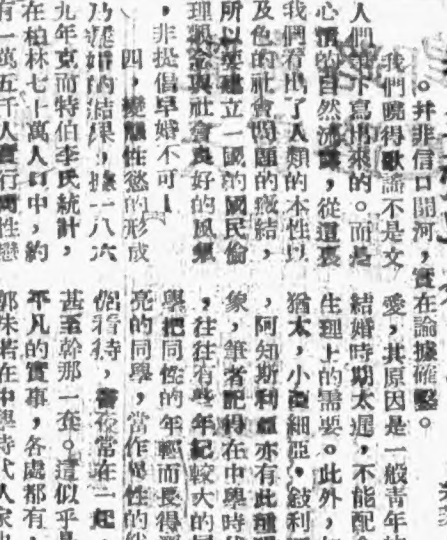 。并非信口開河，實在論據確鑿。
我們曉得歌謠不是文
人們筆下寫出來的。而是
心情的自然流露，從這裏
我們看出了人類的本性以
及色的社會問題的癥結，
所以要建立一國的國民倫
理觀念與社會良好的風氣
，非提倡早婚不可！
四，變態性慾的形成
乃遲婚的結果，據一八六
九年克而特伯李氏統計，
在柏林七十萬人口中，約
有一萬五千人實行同性戀
愛，其原因是一般青年
結婚時期太遲，不能配合
生理上的需要。此外，
猶太，小亞細亞，敍利
，阿知斯利亞亦有此種現
象，筆者記得在中學時
，往往有些年紀較大的同
學把同性的年輕而長得
亮的同學，當作異性的
侶看待，晝夜常在一起，
甚至幹那一套。這似乎是
不凡的實事，各處都有，
郭沫若在中學時代人家